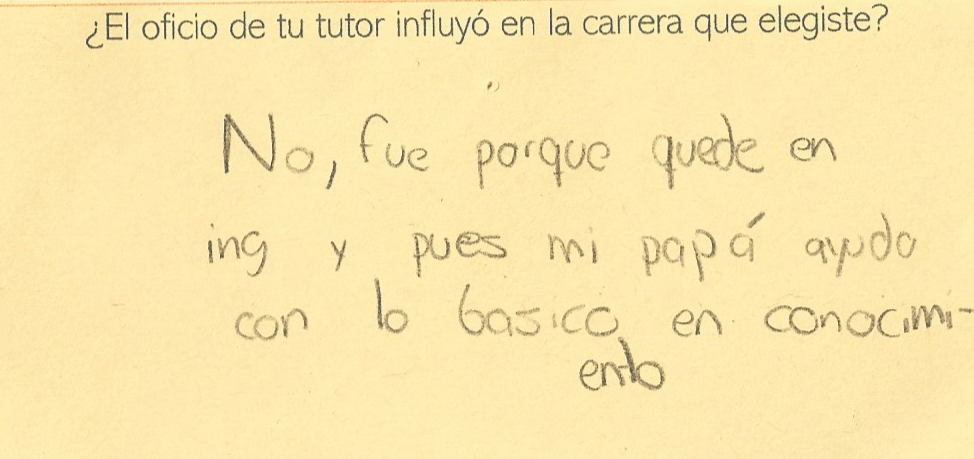 ¿El oficio de tu tutor influyó en la carrera que elegiste?
No, fue porque quede en
ing y pues mi papá ayudo
con lo basico en conocimi-
ento